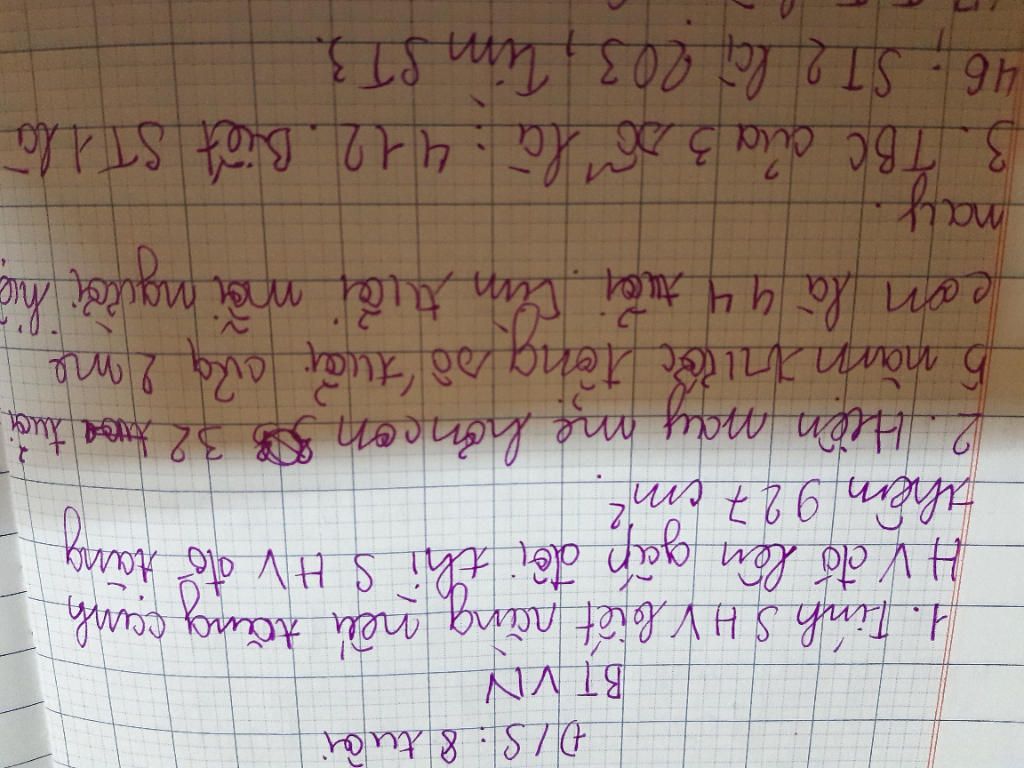 Đ/S: 8 tuổi
BTVN
1. Tính SHV biết rằng nếu tăng cạnh
HV đó lên gấp đôi thì SHV đó tăng
thêm 927 cm²
2. Hiện nay mẹ hơn con 32 tuổi
5 năm trước tổng số tuổi của 2 mẹ
con là 44 tuổi. Tìm tuổi mỗi người
nay.
3. TBC của 3 số là: 412. Biết ST1 là
46; ST2 là 203, tìm ST3.